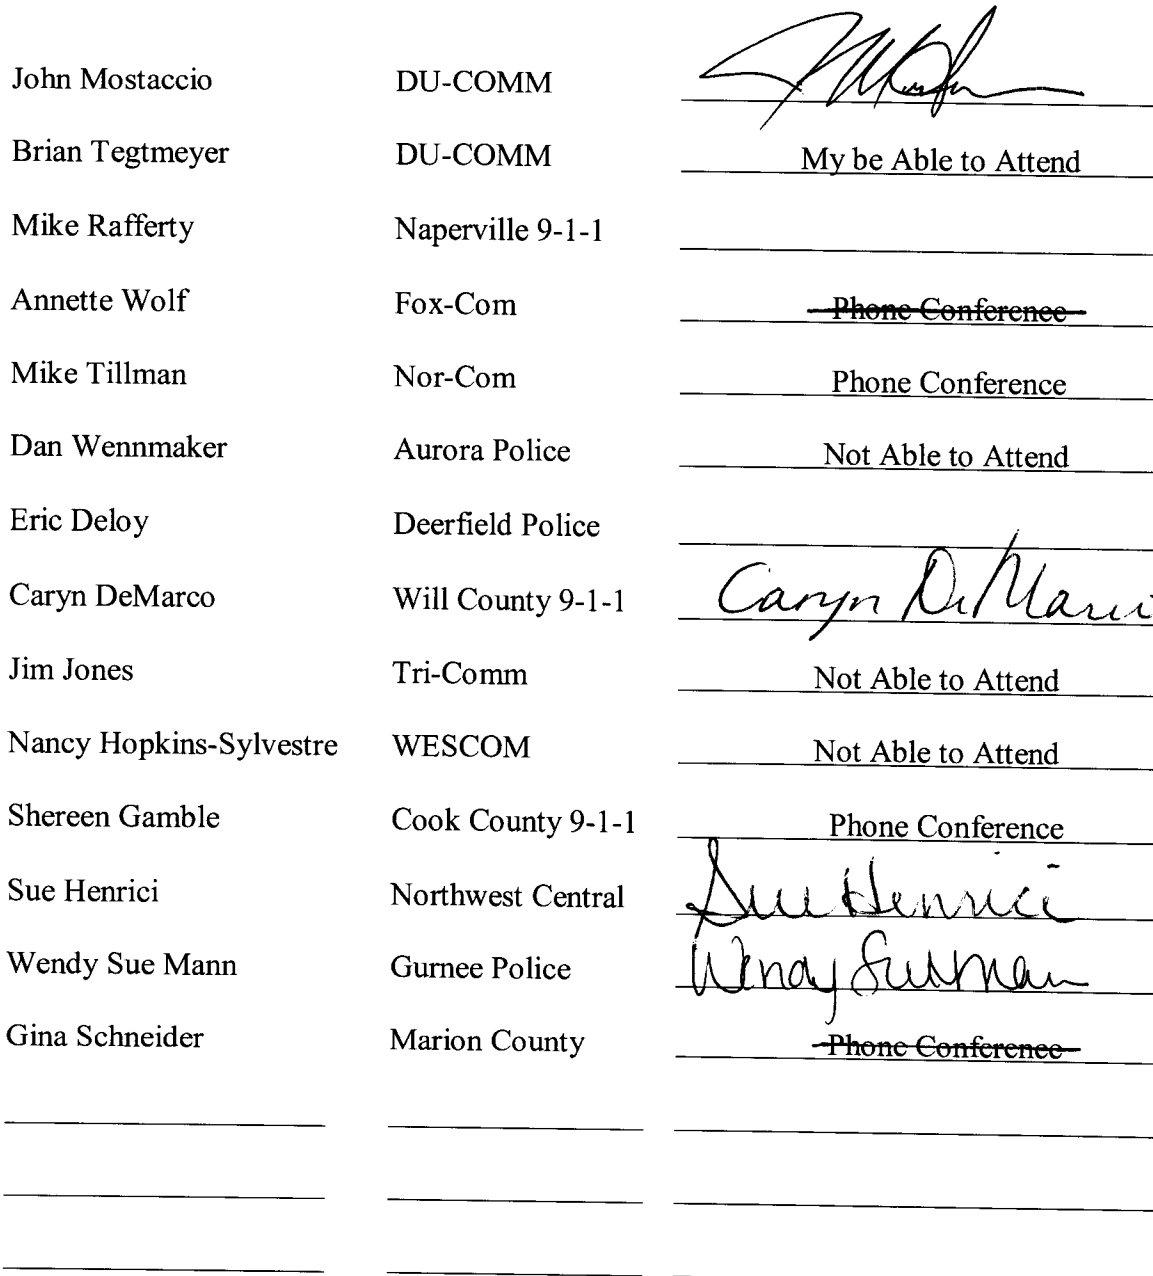 John Mostaccio DU-COMM
Brian Tegtmeyer DU-COMM My be Able to Attend
Mike Rafferty Naperville 9-1-1
Annette Wolf Fox-Com Phone Conference
Mike Tillman Nor-Com Phone Conference
Dan Wennmaker Aurora Police Not Able to Attend
Eric Deloy Deerfield Police
Caryn DeMarco Will County 9-1-1 Caryn DeMarco
Jim Jones Tri-Comm Not Able to Attend
Nancy Hopkins-Sylvestre WESCOM Not Able to Attend
Shereen Gamble Cook County 9-1-1 Phone Conference
Sue Henrici Northwest Central Sue Henrici
Wendy Sue Mann Gurnee Police Wendy Sue Mann
Gina Schneider Marion County Phone Conference